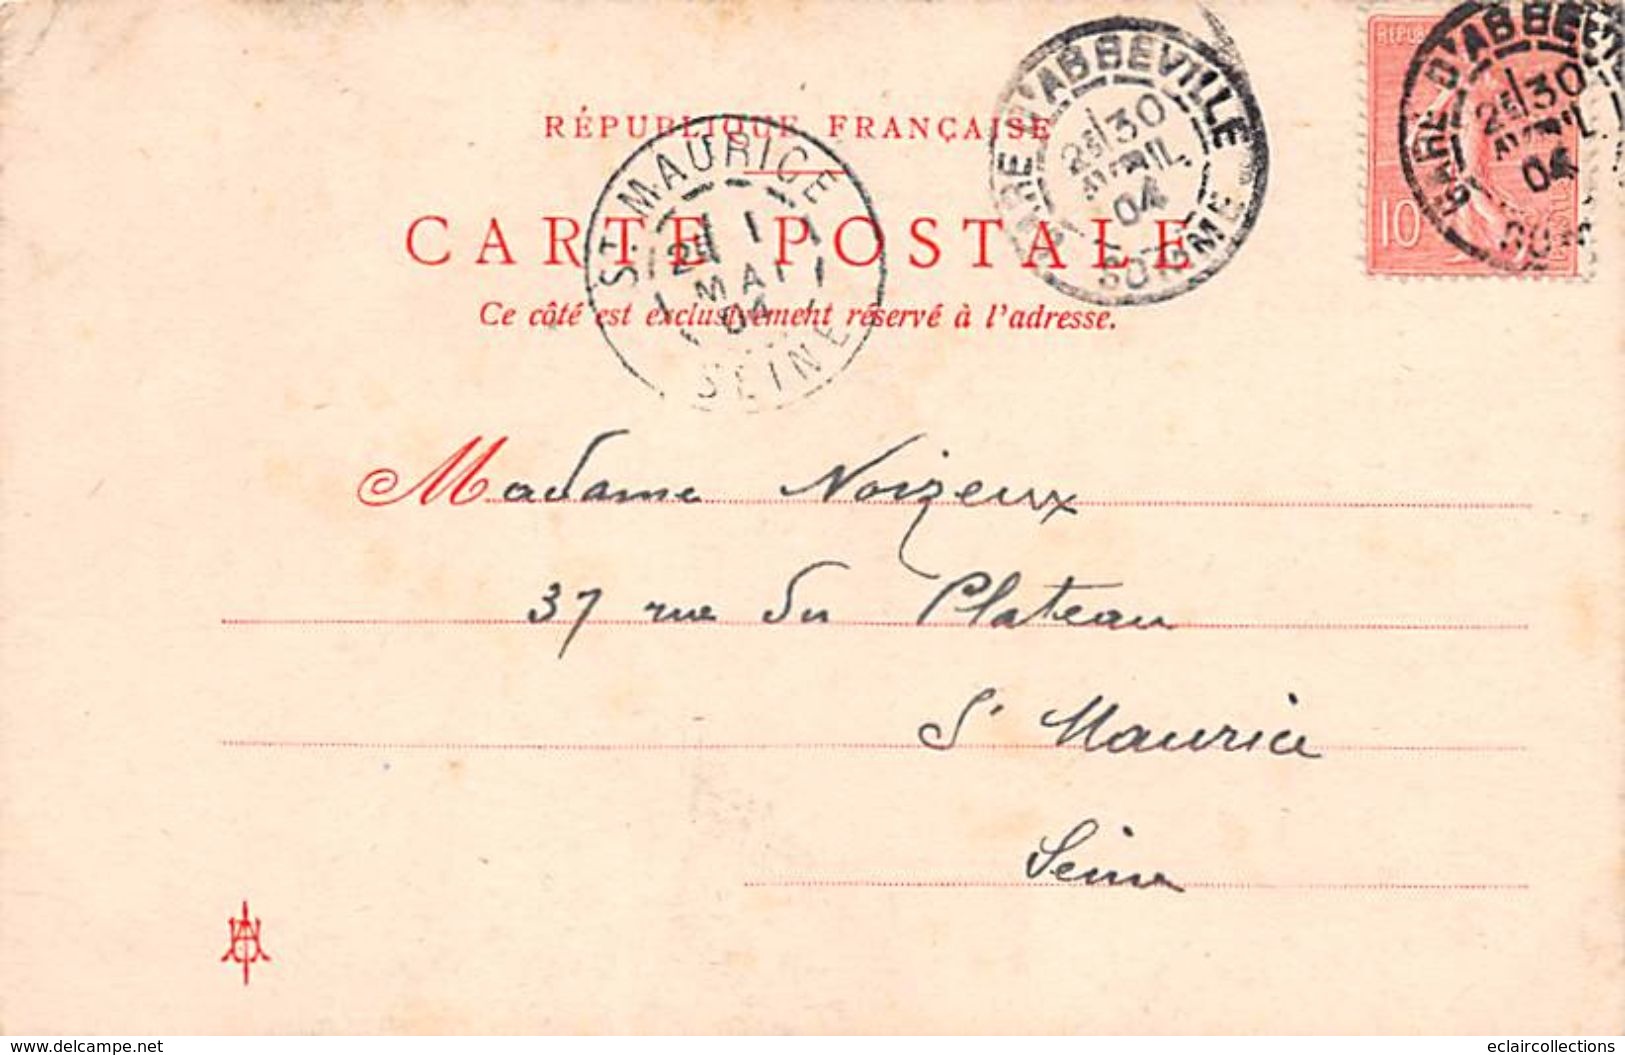 RÉPUBLIQUE FRANÇAISE
CARTE POSTALE
Ce côté est exclusivement réservé à l'adresse.
GARE D'ABBEVILLE
2E 30
AVRIL
04
SOMME
RÉPUB
10
GARE D'ABBEV
2E 30
AVRIL
04
SO
ST MAURICE
2E 1
MAI
04
SEINE
Madame Noizeux
37 rue du Plateau
St Maurice
Seine
www.delcampe.net
eclaircollections